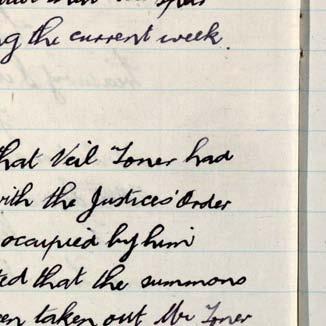 ng the current week.
that Neil Toner had
with the Justices' Order
occupied by him
ted that the summons
en taken out Mr Toner